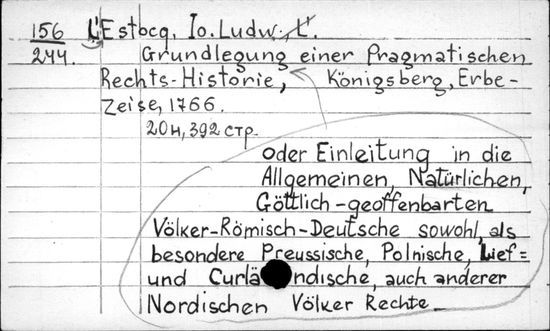 156 L'Estocq, Io. Ludw., L'.
244. Grundlegung einer Pragmatischen
Rechts-Historie, Königsberg, Erbe-
Zeise, 1766.
20н, 392 стр.
oder Einleitung in die
Allgemeinen, Natürlichen,
Göttlich-geoffenbarten
Völker-Römisch-Deutsche sowohl, als
besondere Preussische, Polnische, Lief=
und Curländische, auch anderer
Nordischen Völker Rechte